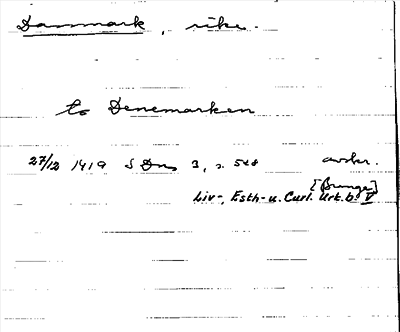 Danmark, rike.
to Denemarken
27/12 1419 S Dn, 3, s. 548 avskr.
[Bunge]
Liv-, Esth- u. Curl. Urk.b. V